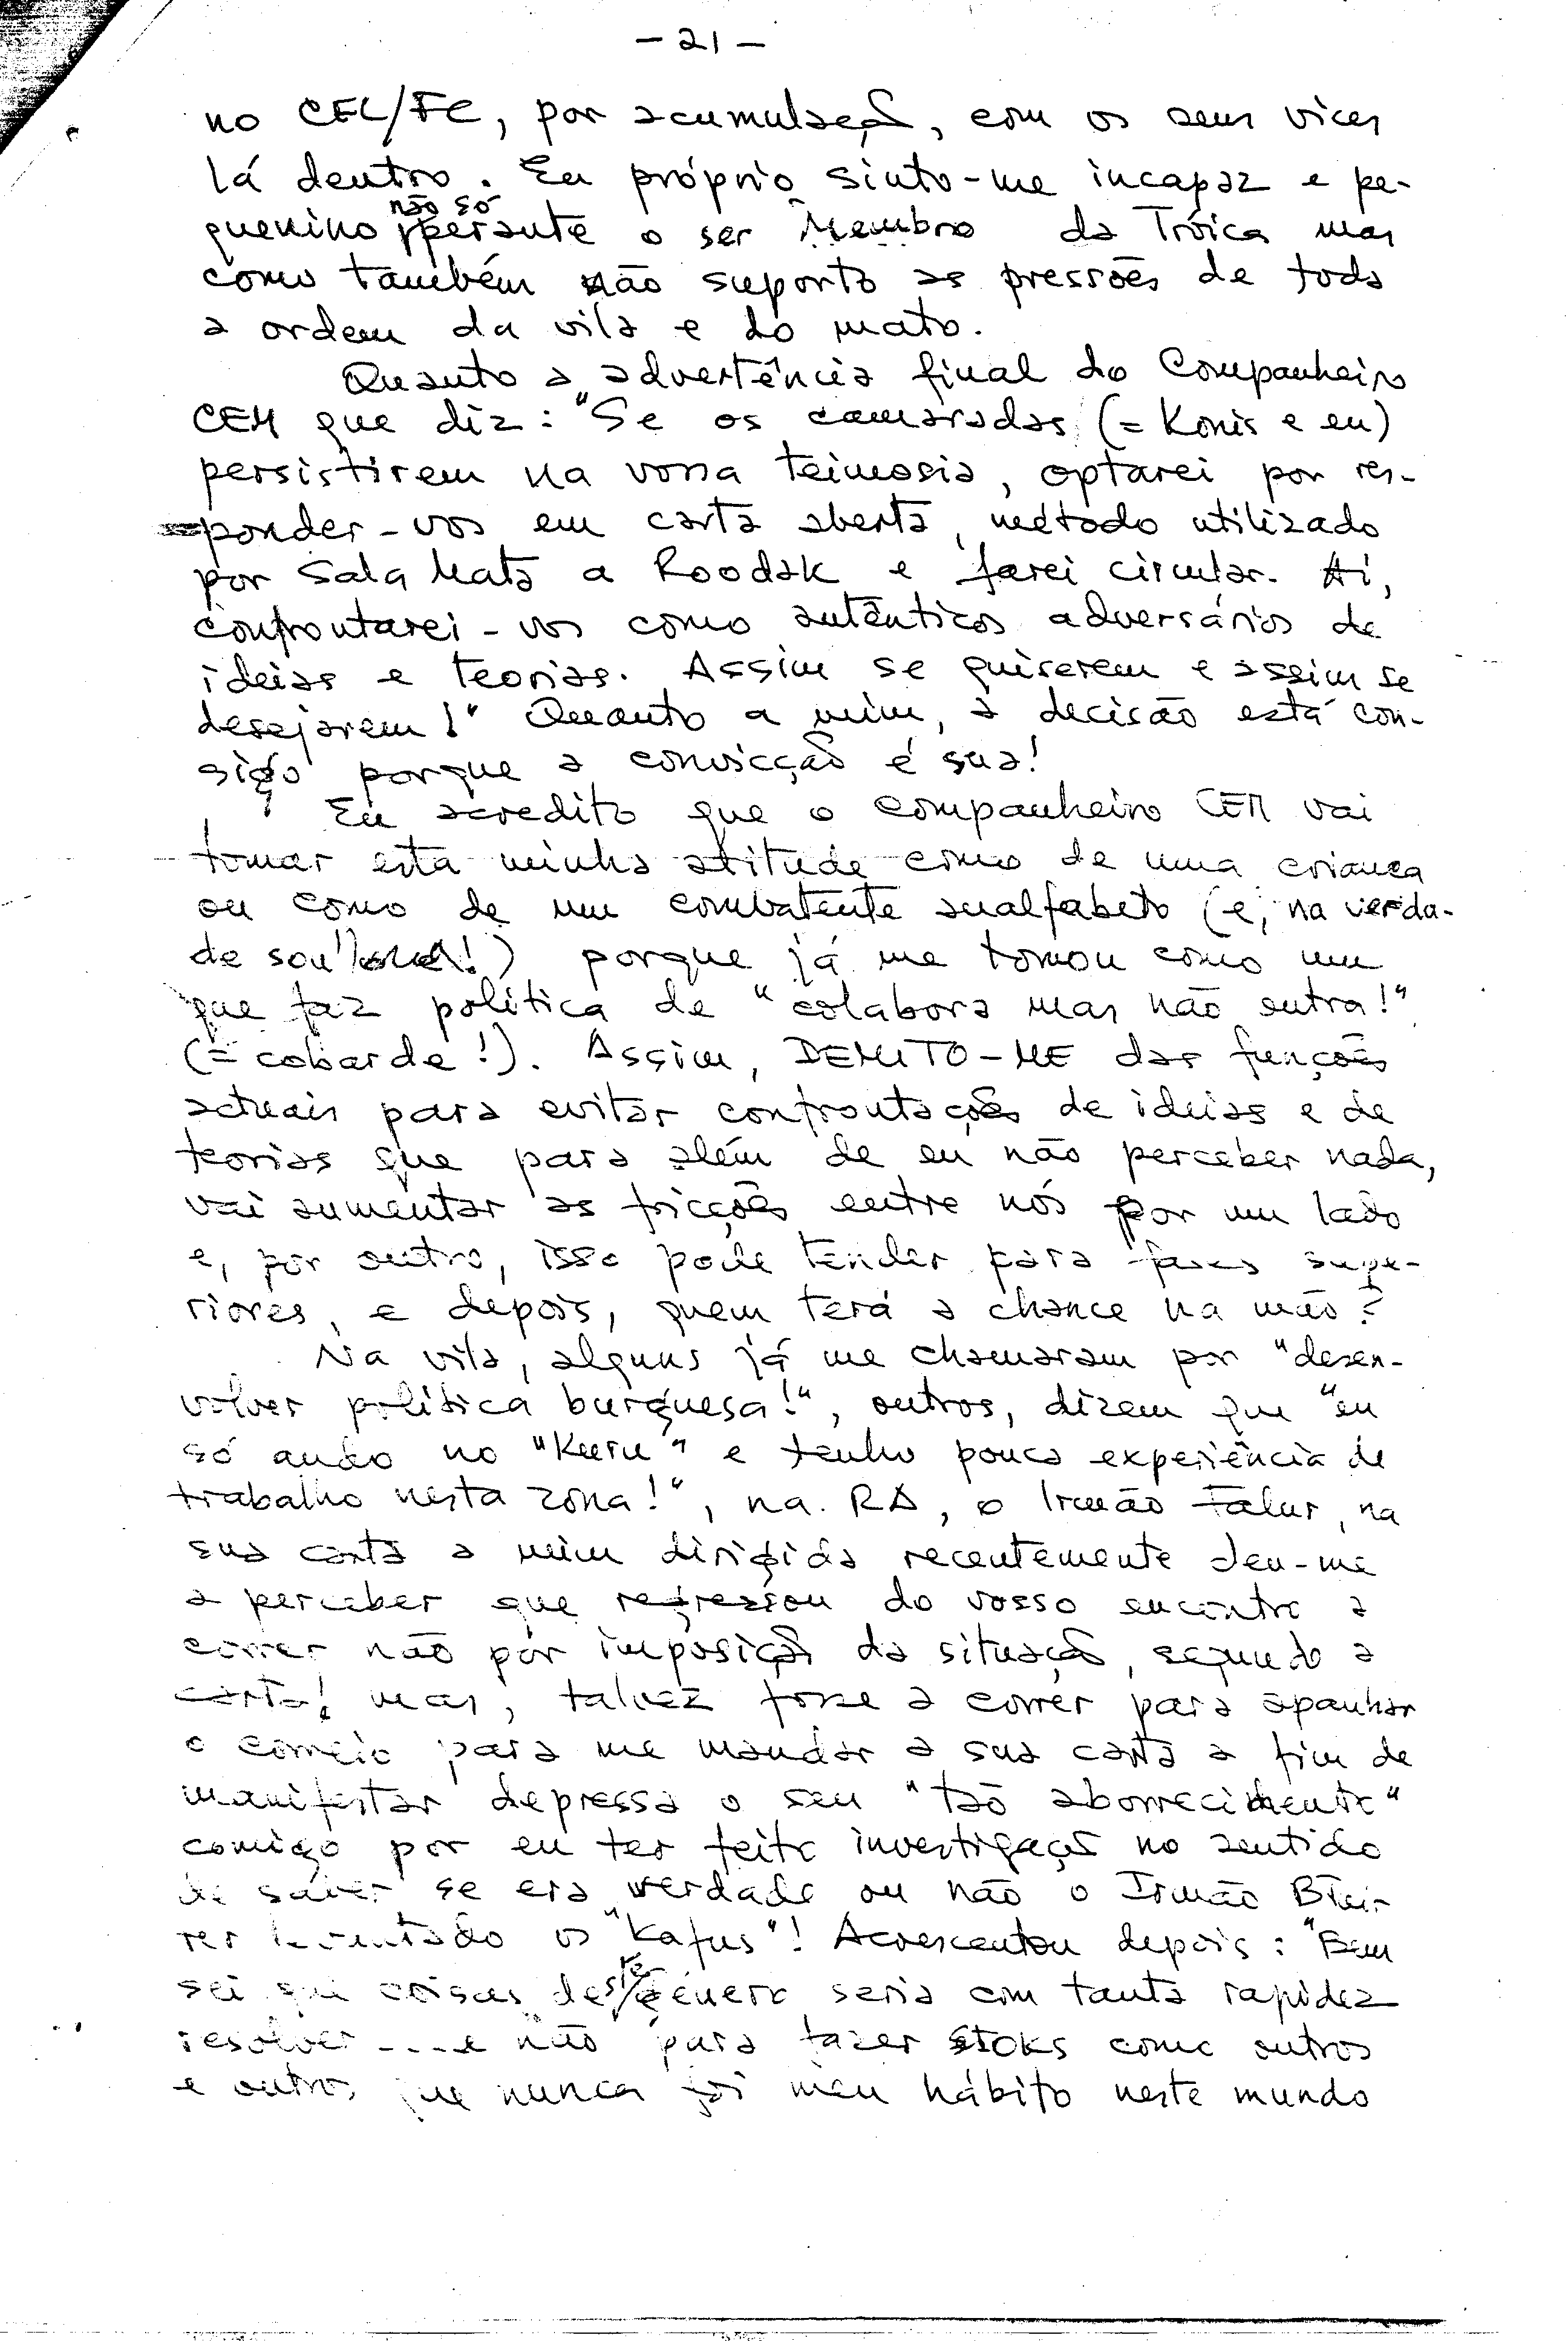 - 21 -
no CEL/FC, por acumulação, com os seus vices
lá dentro. Eu próprio sinto-me incapaz e pe-
não só
quenino perante o ser Membro da Tróica mas
como também não suporto as pressões de toda
a ordem da vila e do mato.
Quanto a advertência final do Companheiro
CEM que diz: "Se os camaradas (= Konis e eu)
persistirem na vossa teimosia, optarei por res-
ponder-vos em carta aberta, método utilizado
por Sala Mata a Roodak e farei circular. Aí,
confrontarei-vos como autênticos adversários de
ideias e teorias. Assim se quiserem e assim se
desejarem!" Quanto a mim, a decisão está con-
sigo porque a convicção é sua!
Eu acredito que o companheiro CEM vai
tomar esta minha atitude como de uma criança
ou como de um combatente analfabeto (e, na verda-
de sou!) porque já me tomou como um
que faz política de "colabora mas não entra!"
(= cobarde!). Assim, DEMITO-ME das funções
actuais para evitar confrontações de ideias e de
teorias que para além de eu não perceber nada,
vai aumentar as fricções entre nós por um lado
e, por outro, isso pode tender para fases supe-
riores, e depois, quem terá a chance na mão?
Na vila, alguns já me chamaram por "desen-
volver política burguesa!", outros, dizem que "eu
só ando no "Kuru" e tenho pouca experiência de
trabalho nesta zona!", na RD, o Irmão Falur, na
sua carta a mim dirigida recentemente deu-me
a perceber que regressou do vosso encontro a
correr não por imposição da situação, segundo a
carta! mas, talvez fosse a correr para apanhar
o correio para me mandar a sua carta a fim de
manifestar depressa o seu "tão aborrecimento"
comigo por eu ter feito investigação no sentido
de saber se era verdade ou não o Irmão
ter levantado os "Kafus"! Acrescentou depois: "Bem
sei que coisas deste género seria com tanta rapidez
resolver ....e não para fazer stoks como outros
e outros que nunca foi meu hábito neste mundo